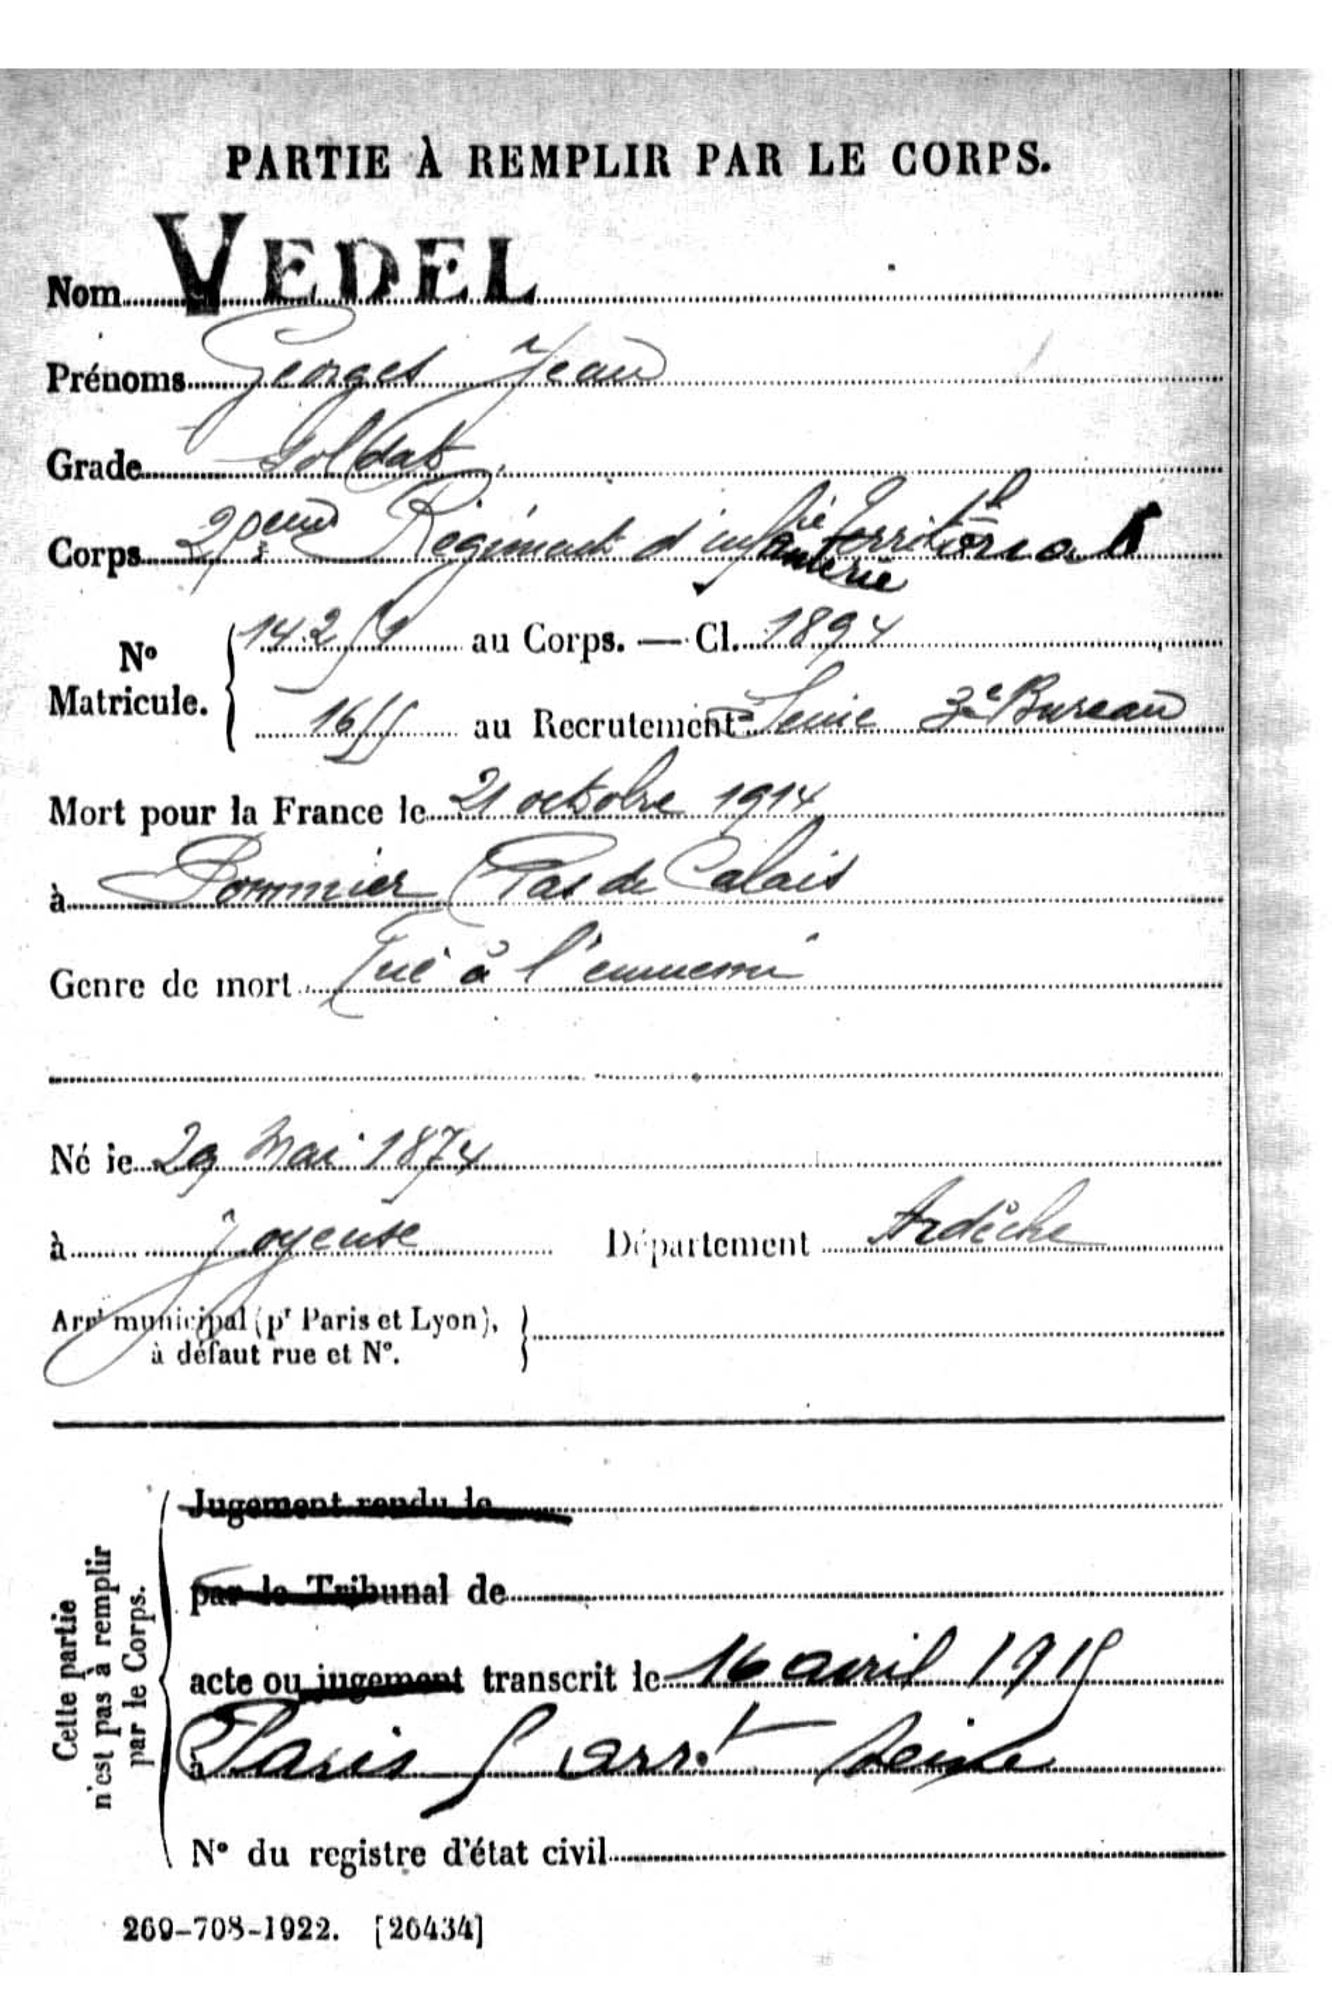 PARTIE À REMPLIR PAR LE CORPS.
Nom VEDEL
Prénoms Georges Jean
Grade Soldat
Corps Régiment d'infanterie territorial
N° Matricule. au Corps. — Cl. 1894
au Recrutement Seine 3e Bureau
Mort pour la France le 21 octobre 1914
à Pommier (Pas de Calais
Genre de mort Tué à l'ennemi
Né le 29 Mai 1874
à Joyeuse Département Ardèche
Arrt municipal (pr Paris et Lyon),
à défaut rue et N°.
Cette partie
n'est pas à remplir
par le Corps.
Jugement rendu le
par le Tribunal de
acte ou jugement transcrit le 16 avril 1915
à Paris arrt Seine
N° du registre d'état civil
269-708-1922. [26434]